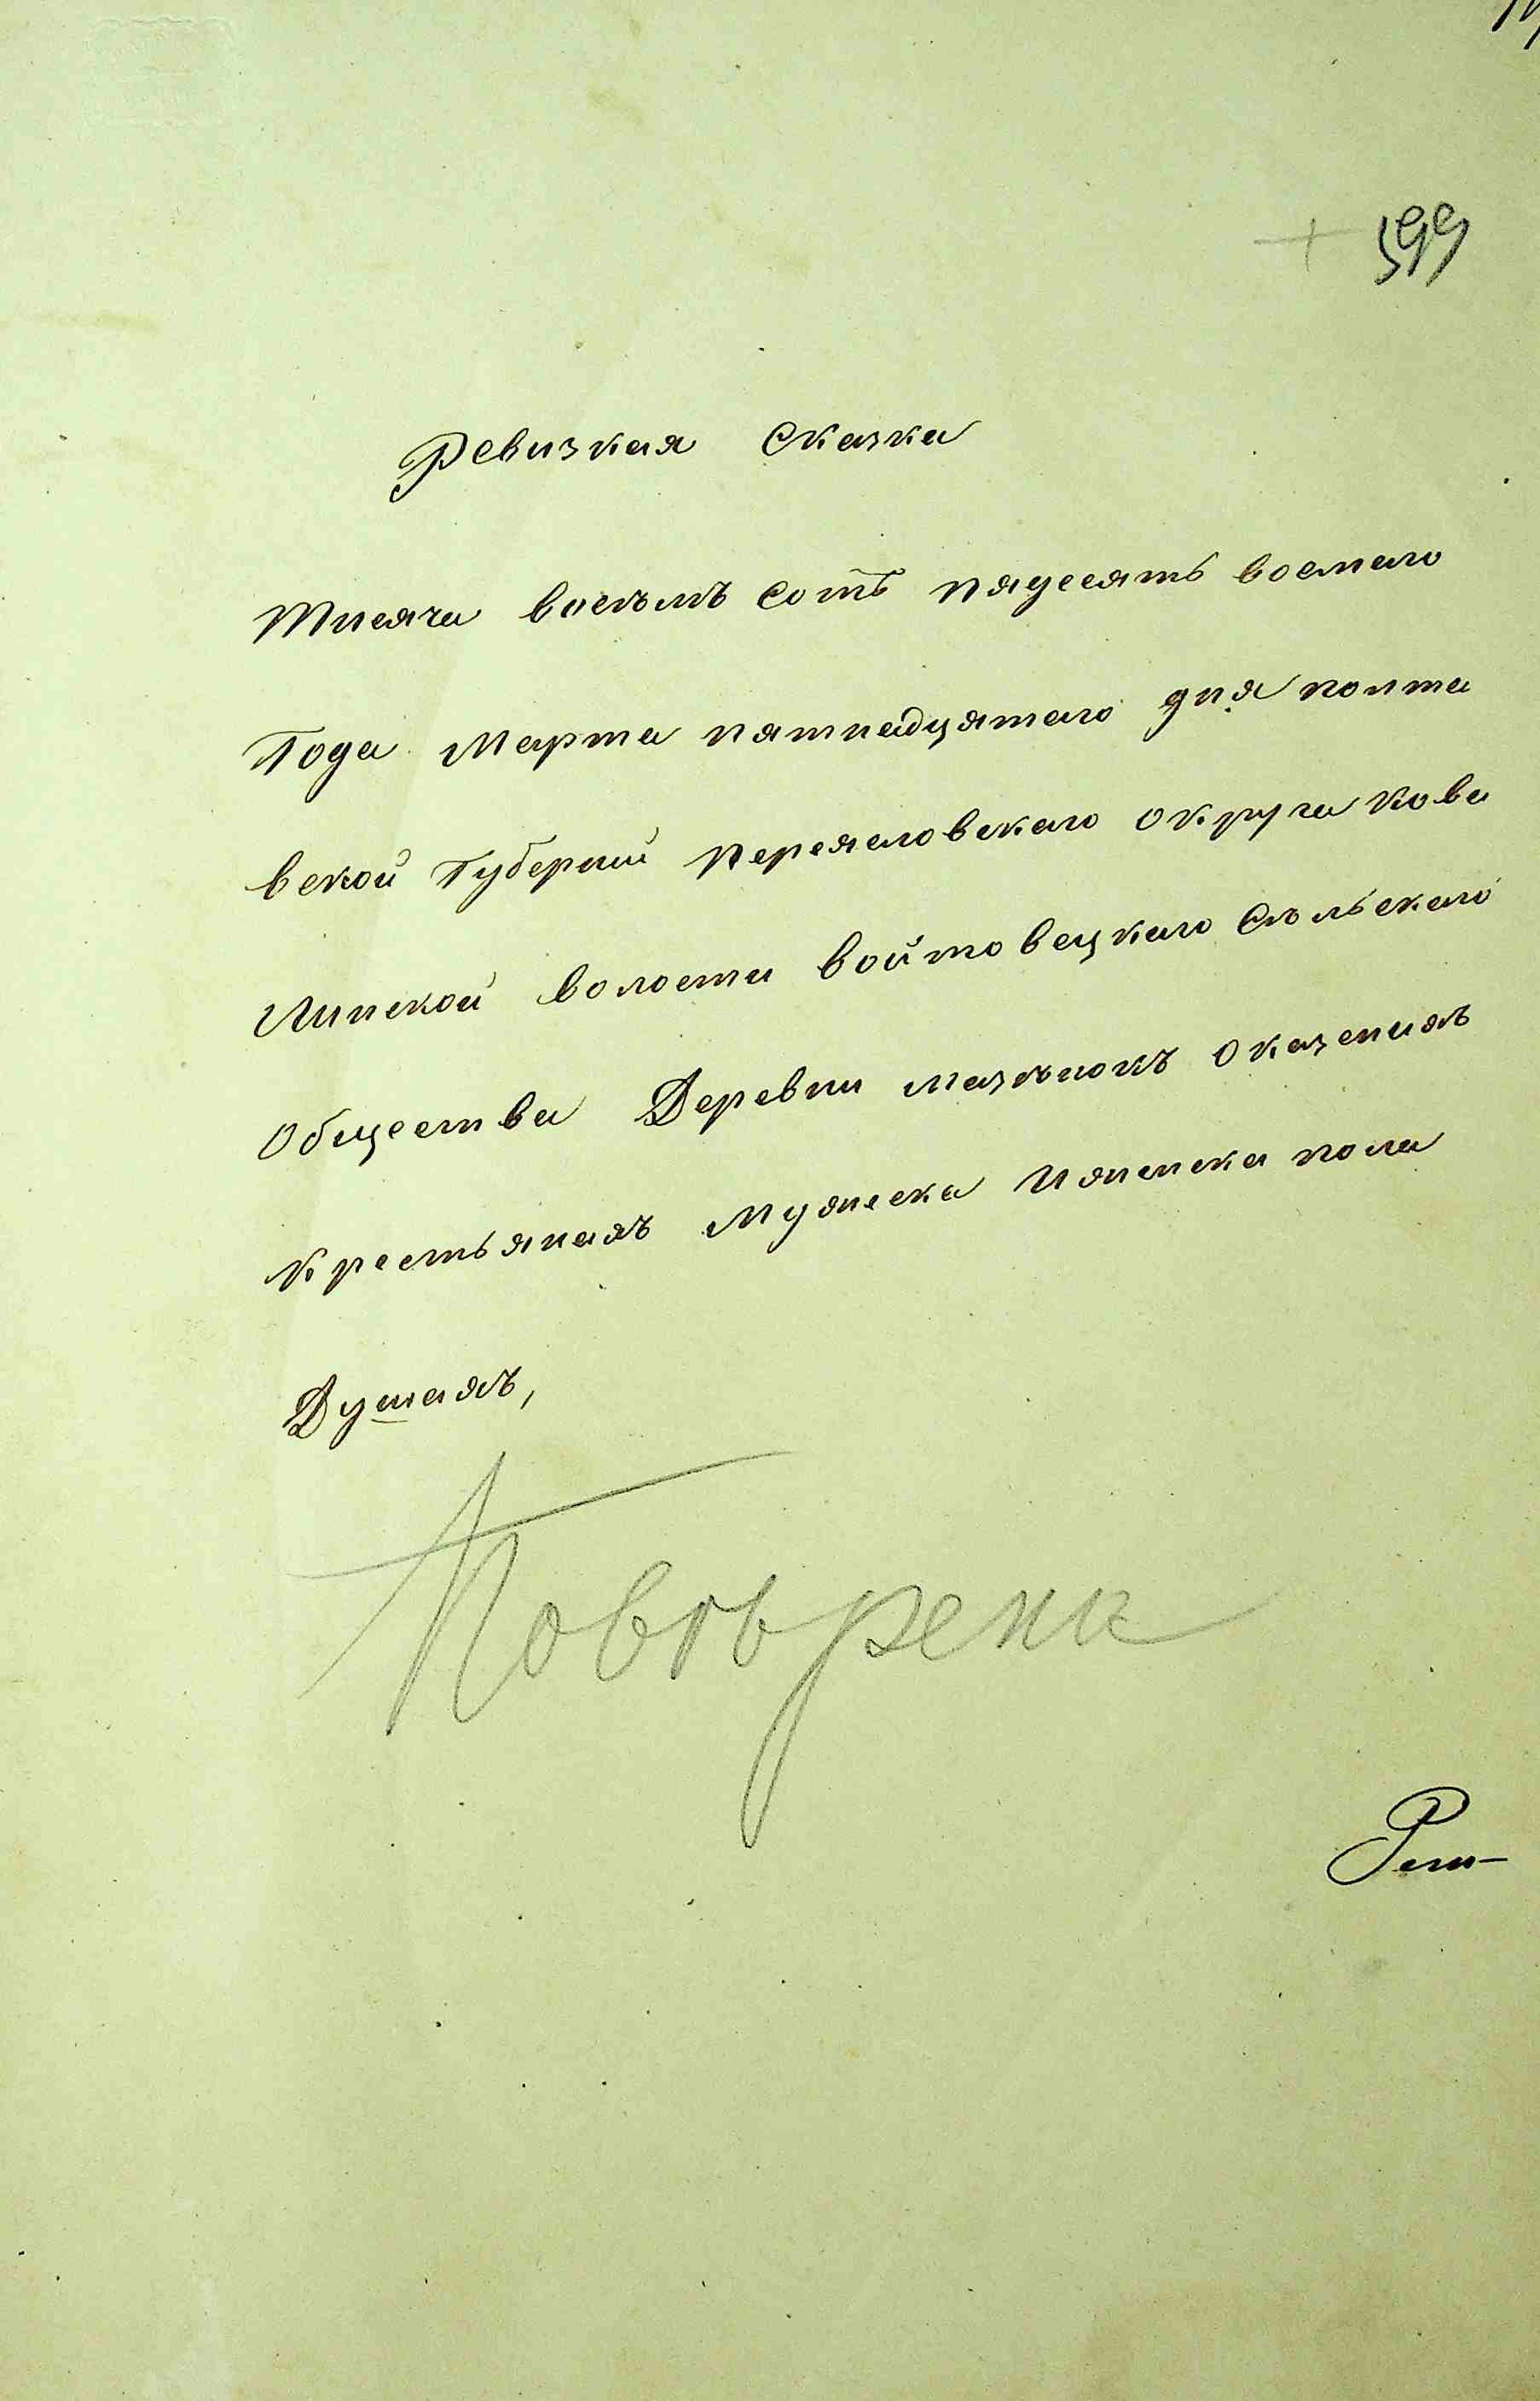 599
Ревизкая Сказка
Тисяча восемъ сотъ пядесятъ восмаго
Года Марта пятнадцятаго дня полта
вской Губерніи переясловскаго округа Кова
Линской волости войтовецкаго Сельскаго
Общества Деревни мазѣнокъ Оказенихъ
Крестьянахъ Мужеска Иженска пола
Душахъ,
Повѣрена